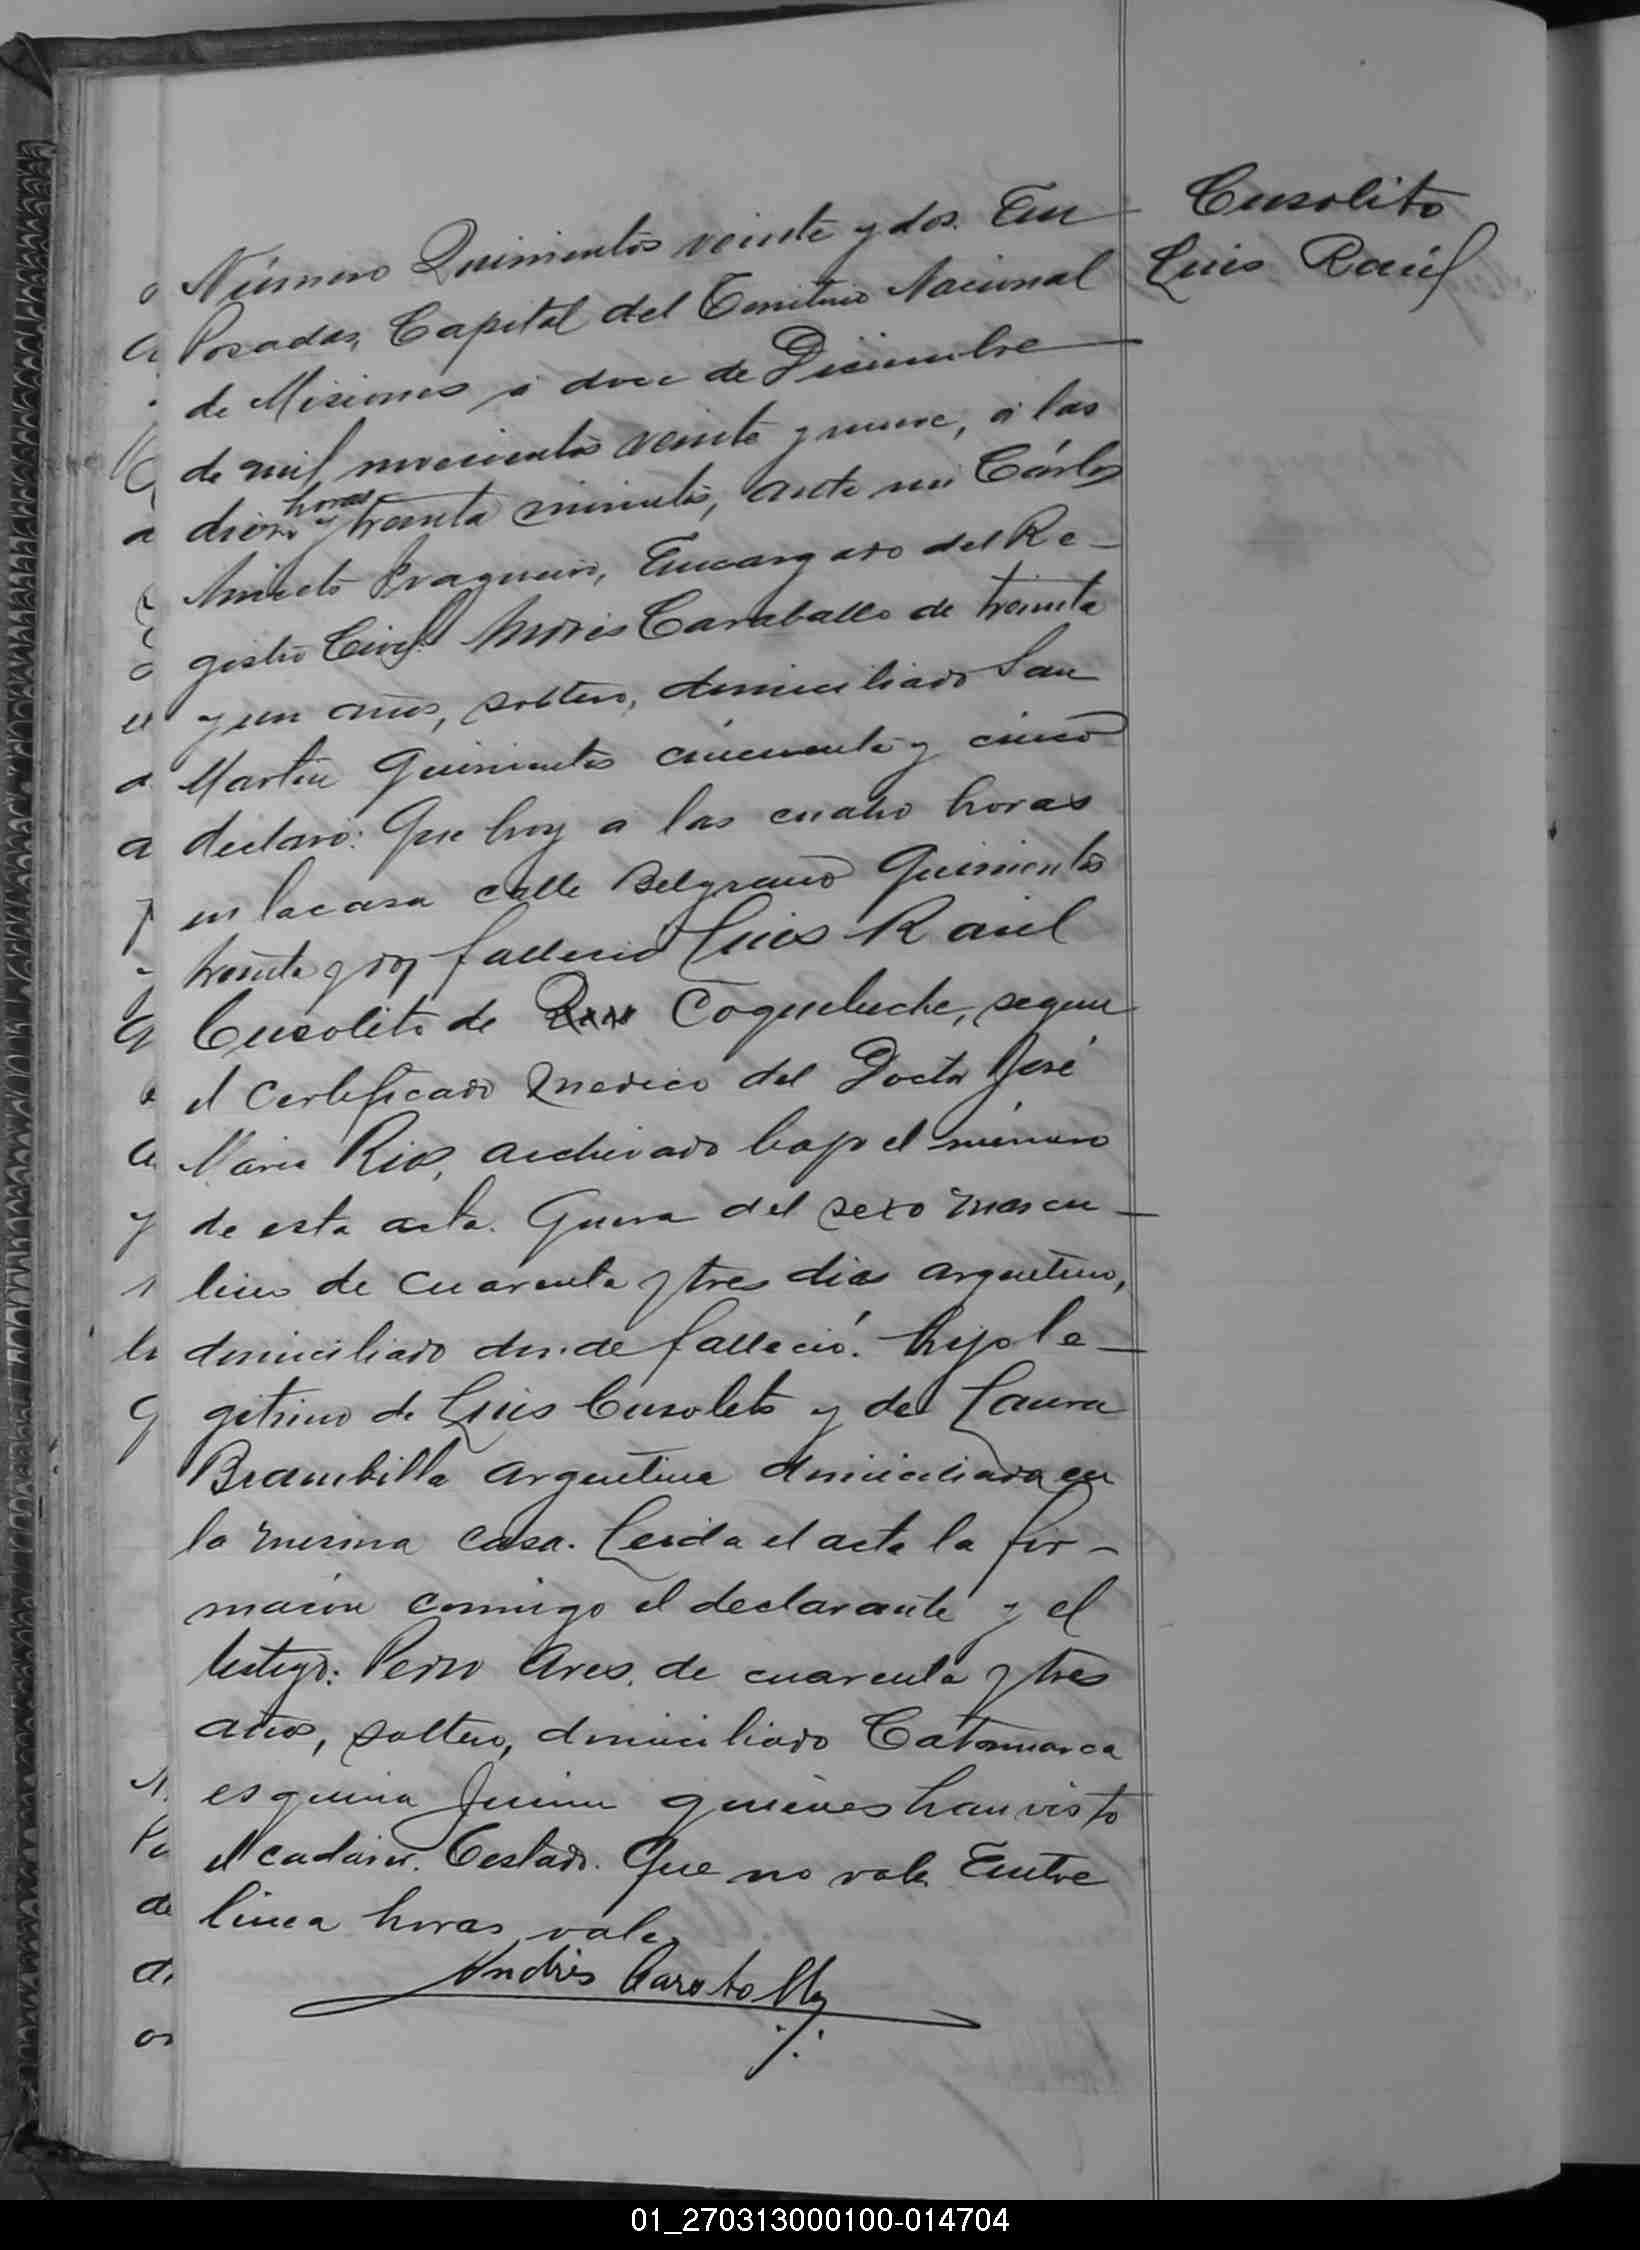 Cusolito
Luis Raúl
Número Quinientos veinte y dos. En
Posadas, Capital del Territorio Nacional
de Misiones á doce de Diciembre
de mil novecientos veinte y nueve, á las
horas
y treinta minutos, ante mi Cárlos
Aniceto Fragueiro, Encargado del Re-
gistro Civil Andrés Caraballo de treinta
y un años, soltero, domiciliado San
Martin Quinientos cincuenta y cinco
declaró: Que hoy a las cuatro horas
en la casa calle Belgrano Quinientos
treinta y dos falleció Luis Raúl
Cusolito de Coqueluche, segun
el certificado medico del Doctor José
Maria Rios, archivado bajo el número
de esta acta. Que era del sexo mascu-
lino de cuarenta y tres dias argentino,
domiciliado donde falleció. hijo le-
gitimo de Luis Cusolito y de Laura
Brambilla argentina domiciliada en
la misma casa. Leida el acta la fir-
maron conmigo el declarante y el
testigo: Pedro Ares, de cuarenta y tres
años, soltero, domiciliado Catamarca
esquina Junin quienes han visto
el cadáver. Testado. Que no vale Entre
linea horas vale
Andrés Caraballo
01_270313000100-014704